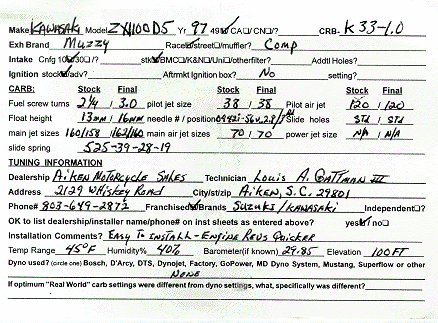 Make KAWASAKI Model ZX1100D5 Yr 97 49☑ CA/☐ CN/☐? CRB- K33-1.0
Exh Brand Muzzy Race☑street☐/muffler? Comp
Intake Cnfg 10☑30☐/? stk☑BMC☐/K&N☐/Uni☐/otherfilter? Addtl Holes?
Ignition stock☑/adv? Aftrmkt Ignition box? No setting?
CARB: Stock Final Stock Final Stock Final
Fuel screw turns 2 1/4 / 3.0 pilot jet size 38 / 38 Pilot air jet 120 / 120
Float height 13mm / 16mm needle # / position Slide holes STd / STd
main jet sizes 160/158 162/160 main air jet sizes 70 / 70 power jet size N/A / N/A
slide spring 525-39-28-19
TUNING INFORMATION
Dealership AIKEN MOTORCYCLE SALES Technician Louis A. GATTMAN III
Address 2129 WHISKEY ROAD City/st/zip AIKEN, S.C. 29801
Phone# 803-649-2872 Franchised☑Brands SUZUKI/KAWASAKI Independent☐?
OK to list dealership/installer name/phone# on inst sheets as entered above? yes☑ no☐
Installation Comments? EASY TO INSTALL-ENGINE REVS QUICKER
Temp Range 45°F Humidity% 40% Barometer(if known) 29.85 Elevation 100FT
Dyno used? (circle one) Bosch, D'Arcy, DTS, Dynojet, Factory, GoPower, MD Dyno System, Mustang, Superflow or other
NONE
If optimum "Real World" carb settings were different from dyno settings, what, specifically was different?